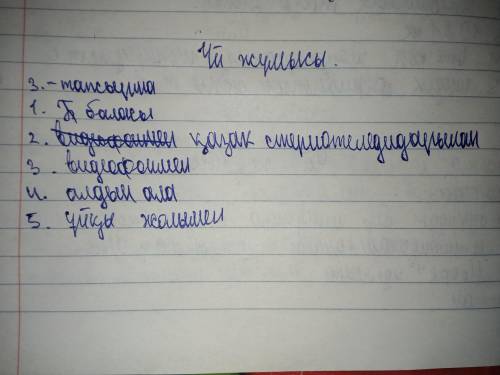 Үй жұмысы.
3.-тапсырма
1. Тұ баласы
2. видеофонмен қазақ стереотеледидарынан
3. видеофонмен
4. алдын ала
5. ұйқы жолымен